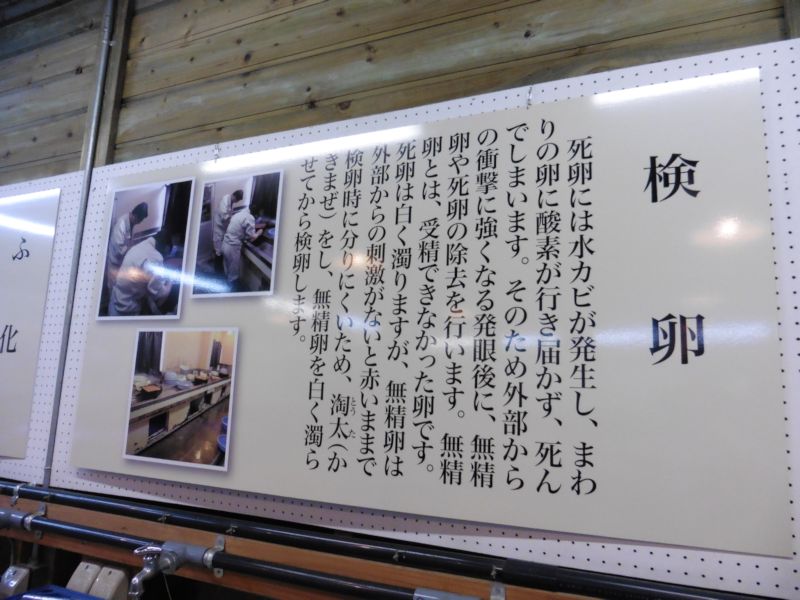 検卵
死卵には水カビが発生し、まわ
りの卵に酸素が行き届かず、死ん
でしまいます。そのため外部から
の衝撃に強くなる発眼後に、無精
卵や死卵の除去を行います。無精
卵とは、受精できなかった卵です。
死卵は白く濁りますが、無精卵は
外部からの刺激がないと赤いままで
検卵時に分りにくいため、淘太(か
とうた
きまぜ)をし、無精卵を白く濁ら
せてから検卵します。
ふ化